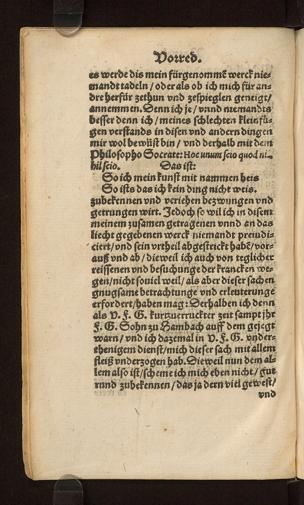 Vorred.
es werde dis mein fürgenommē werck nie-
mandt tadeln / oder als ob ich mich für an-
dre herfür zethun vnd zespieglen geneigt /
annemmen. Denn ich je / vnnd niemandts
besser denn ich / meines schlechten kleinfü-
gen verstands in disen vnd andern dingen
mir wol bewüst bin / vnd derhalb mit dem
Philosopho Socrate: Hoc unum scio quod ni-
hil scio. Das ist:
So ich mein kunst mit nammen heis
So ists das ich kein ding nicht weis.
zubekennen vnd veriehen bezwungen vnd
getrungen wirt. Jedoch so wil ich in disem
meinem zusamen getragenen vnnd an das
liecht gegebenen werck niemandt preiudi-
ciert / vnd sein vrtheil abgestrickt habē / vor-
auß vnd ab / die weil ich auch von teglicher
reissenen vnd besuchunge der krancken we-
gen / nicht souiel weil / als aber dieser sachen
gnugsame betrachtunge vnd erleuterunge
erfordert / haben mag: Derhalben ich denn
als V. F. G. kurtzuerruckter zeit sampt jhr
F. G. Sohn zu Hambach auff dem gejegt
warn / vnd ich dazemal in V. F. G. vnder-
thenigem dienst / mich dieser sach mit allem
fleiß vnderzogen hab. Dieweil nun dem al-
lem also ist / scheme ich mich eben nicht / gut
rund zubekennen / das ja dern viel gewest /
vnd